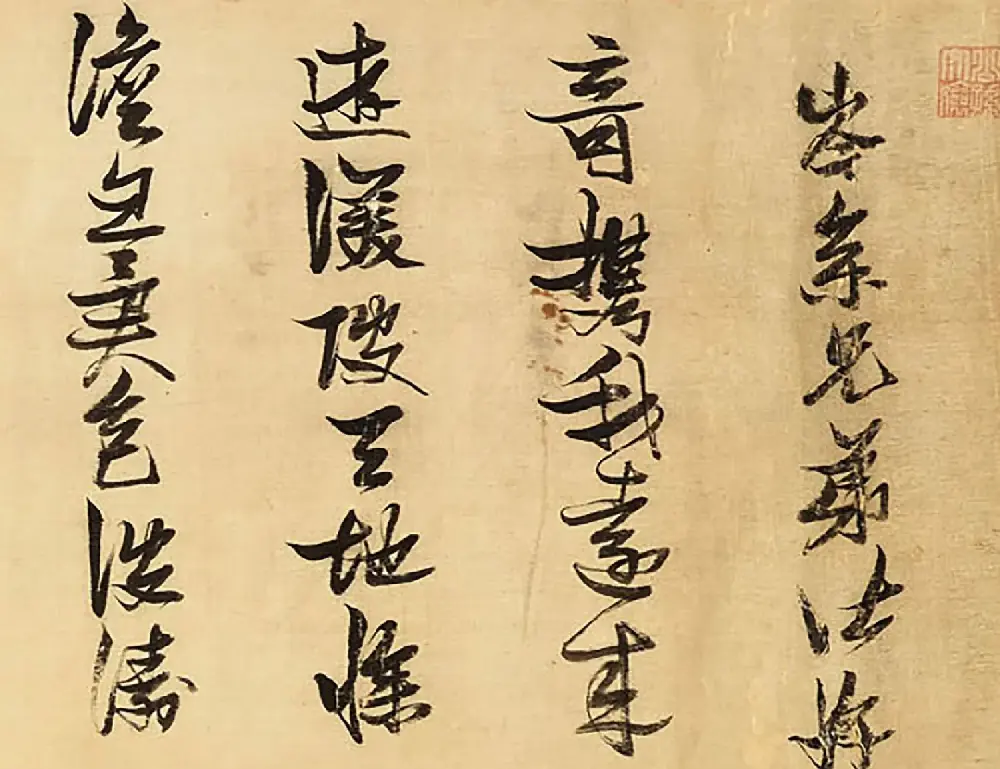 岑參兄弟皆好
奇攜我遠來
遊渼陂天地慘
澹忽異色波濤